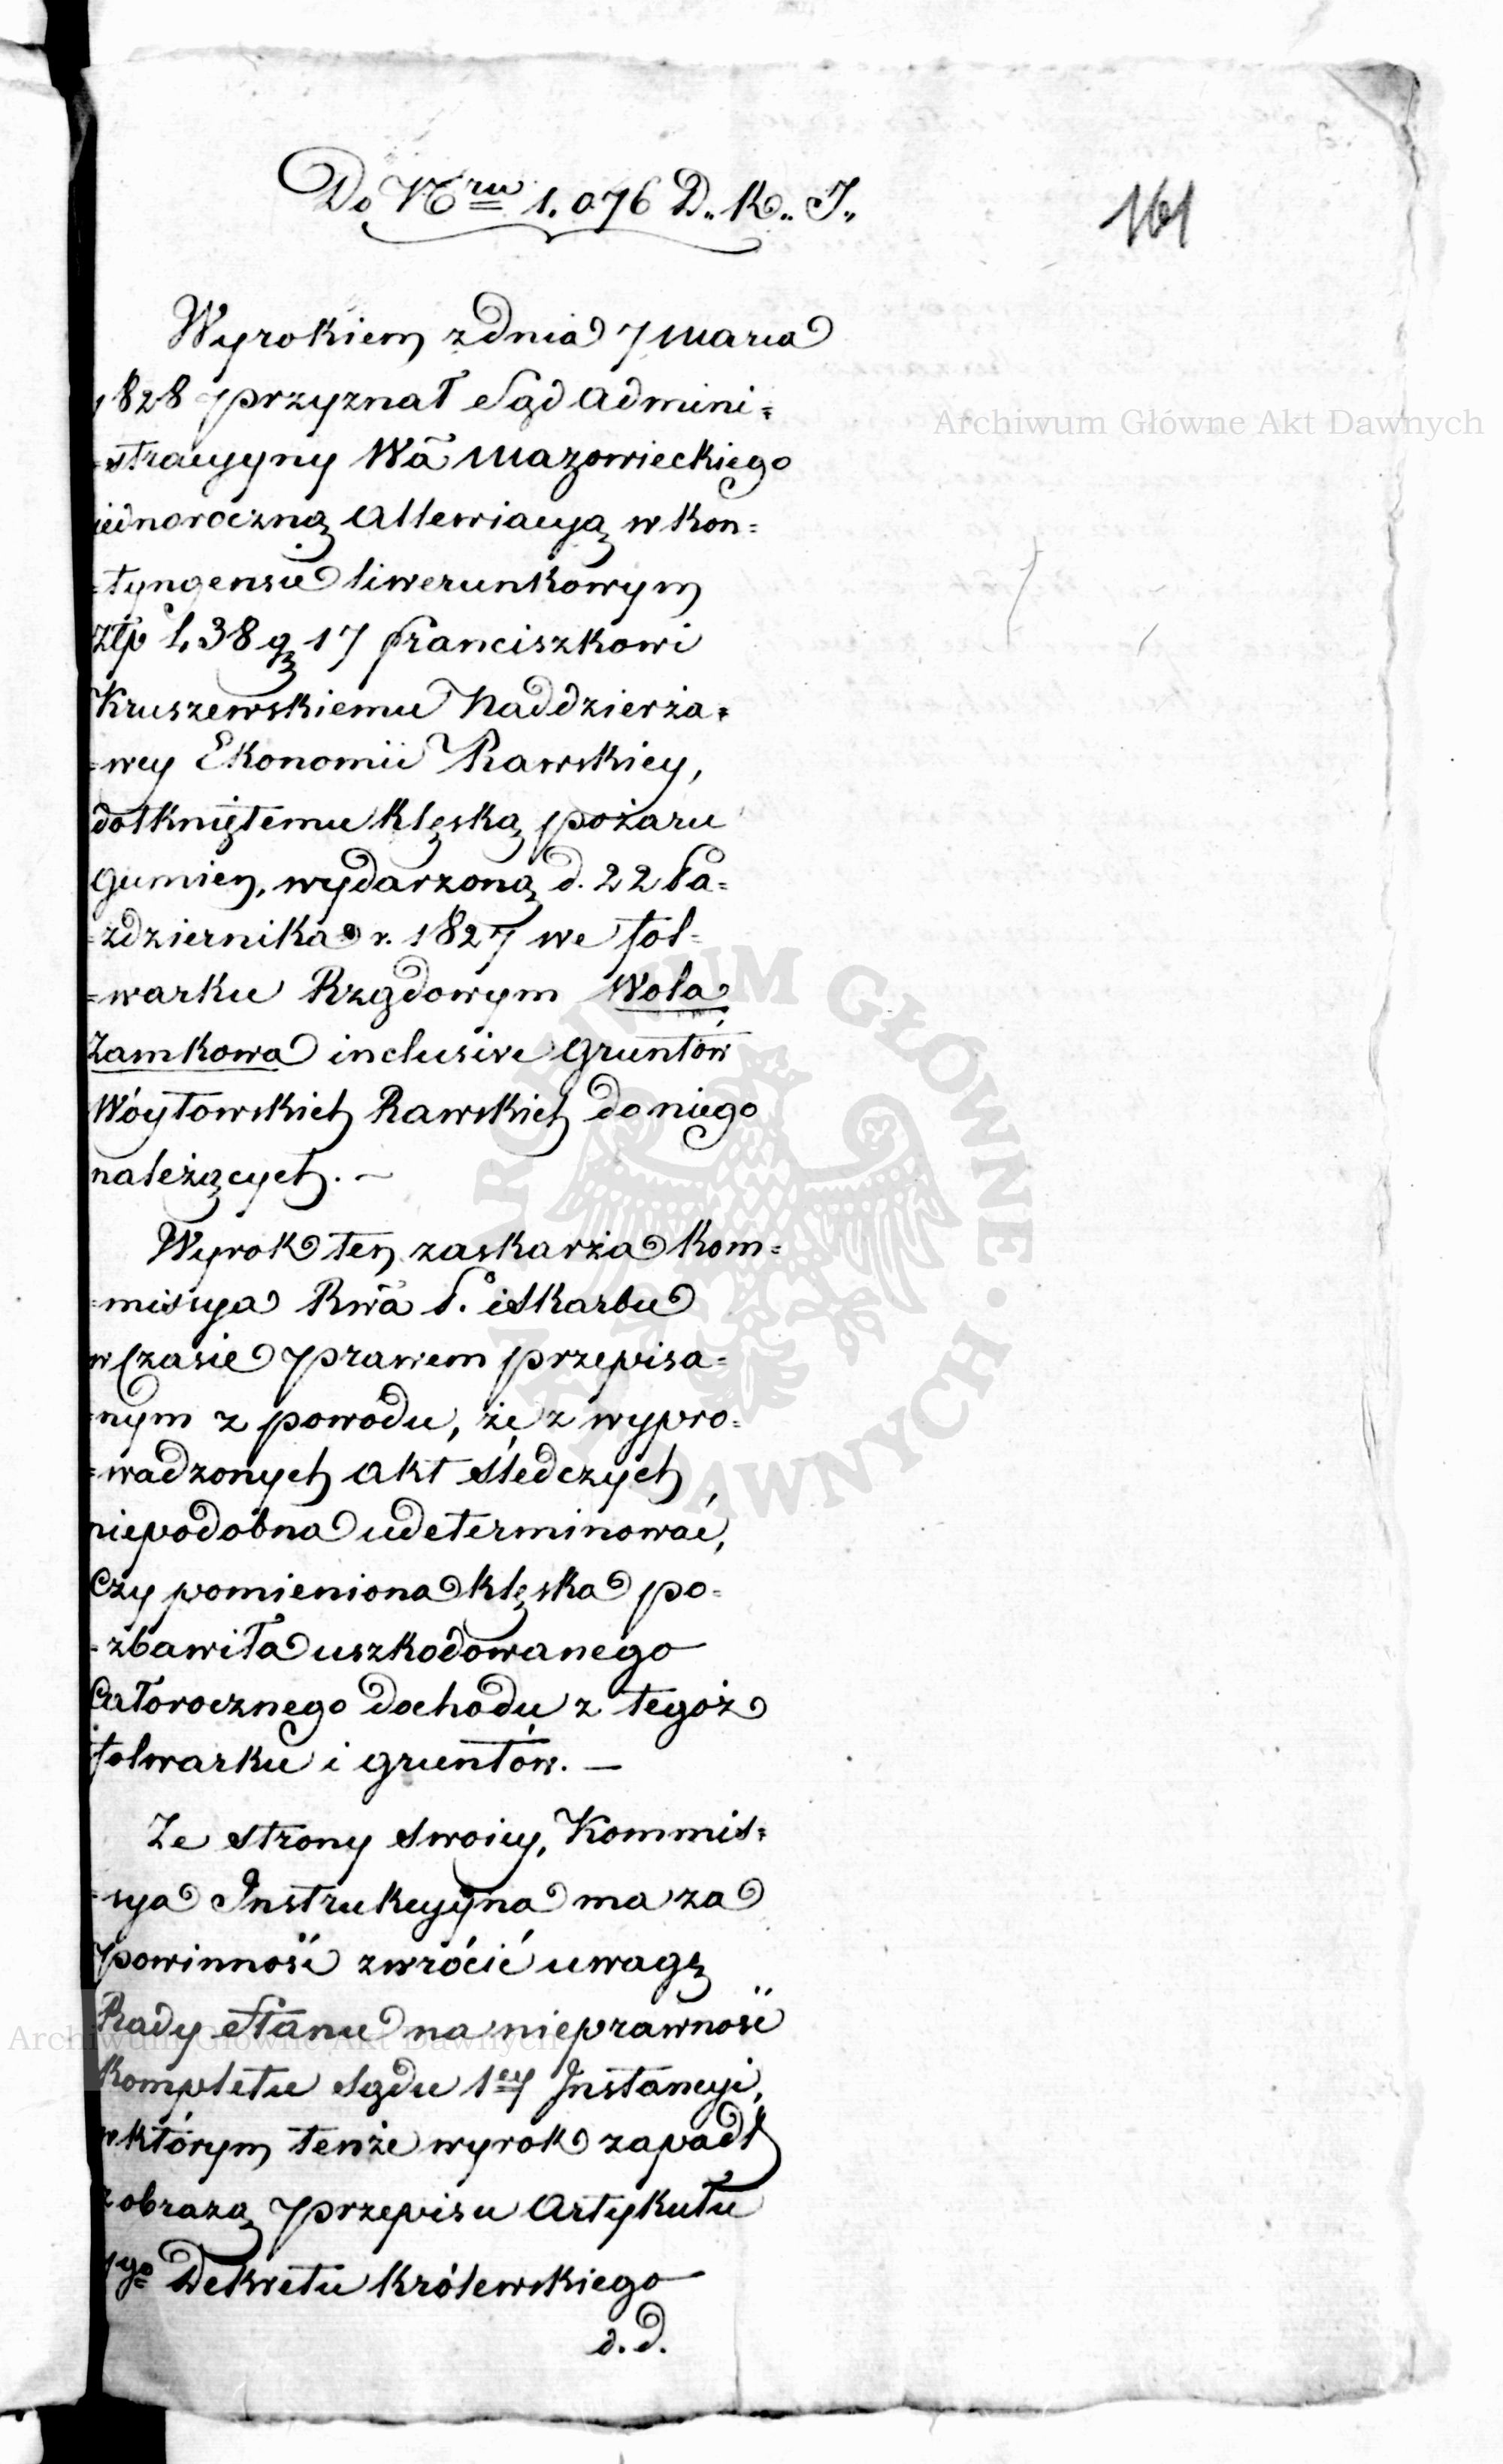 Do Nru 1.076 D.. K.. J..
161
Wyrokiem z dnia 7 Marca
1828 przyznał Sąd Admini=
=stracyyny Wã Mazowieckiego
iednoroczną Allewiacyą w Kon=
=tyngensie liwerunkowym
Złp 1,38 g 17 Franciszkowi
Kruszewskiemu Naddzierża=
=wcy Ekonomii Rawskiey,
dotkniętemu klęską pożaru
Gumien, wydarzoną d. 22 Pa=
=zdziernika r. 1827 we fol=
=warku Rządowym Wola
Zamkowa inclusive Gruntów
Wóytowskich Rawskich do niego
należących. —
Wyrok ten zaskarża Kom=
=missya Rwã P. i Skarbu
w Czasie prawem przepisa=
=nym z powodu, że z wypro=
=wadzonych Akt śledczych
niepodobna udeterminować,
Czy pomieniona klęska po=
=zbawiła uszkodowanego
Całorocznego dochodu z tegoż
folwarku i gruntów. —
Ze strony swoiey, Kommis=
=sya Instrukcyyna ma za
powinność zwrócić uwagę
Rady Stanu na nieprawność
Kompletu Sądu 1ey Instancyi,
w którym tenże wyrok zapadł
z obrazą przepisu Artykułu
1go Dekretu Królewskiego
d. d.
Archiwum Główne Akt Dawnych
ARCHIWUM GŁÓWNE · AKT DAWNYCH ·
Archiwum Główne Akt Dawnych